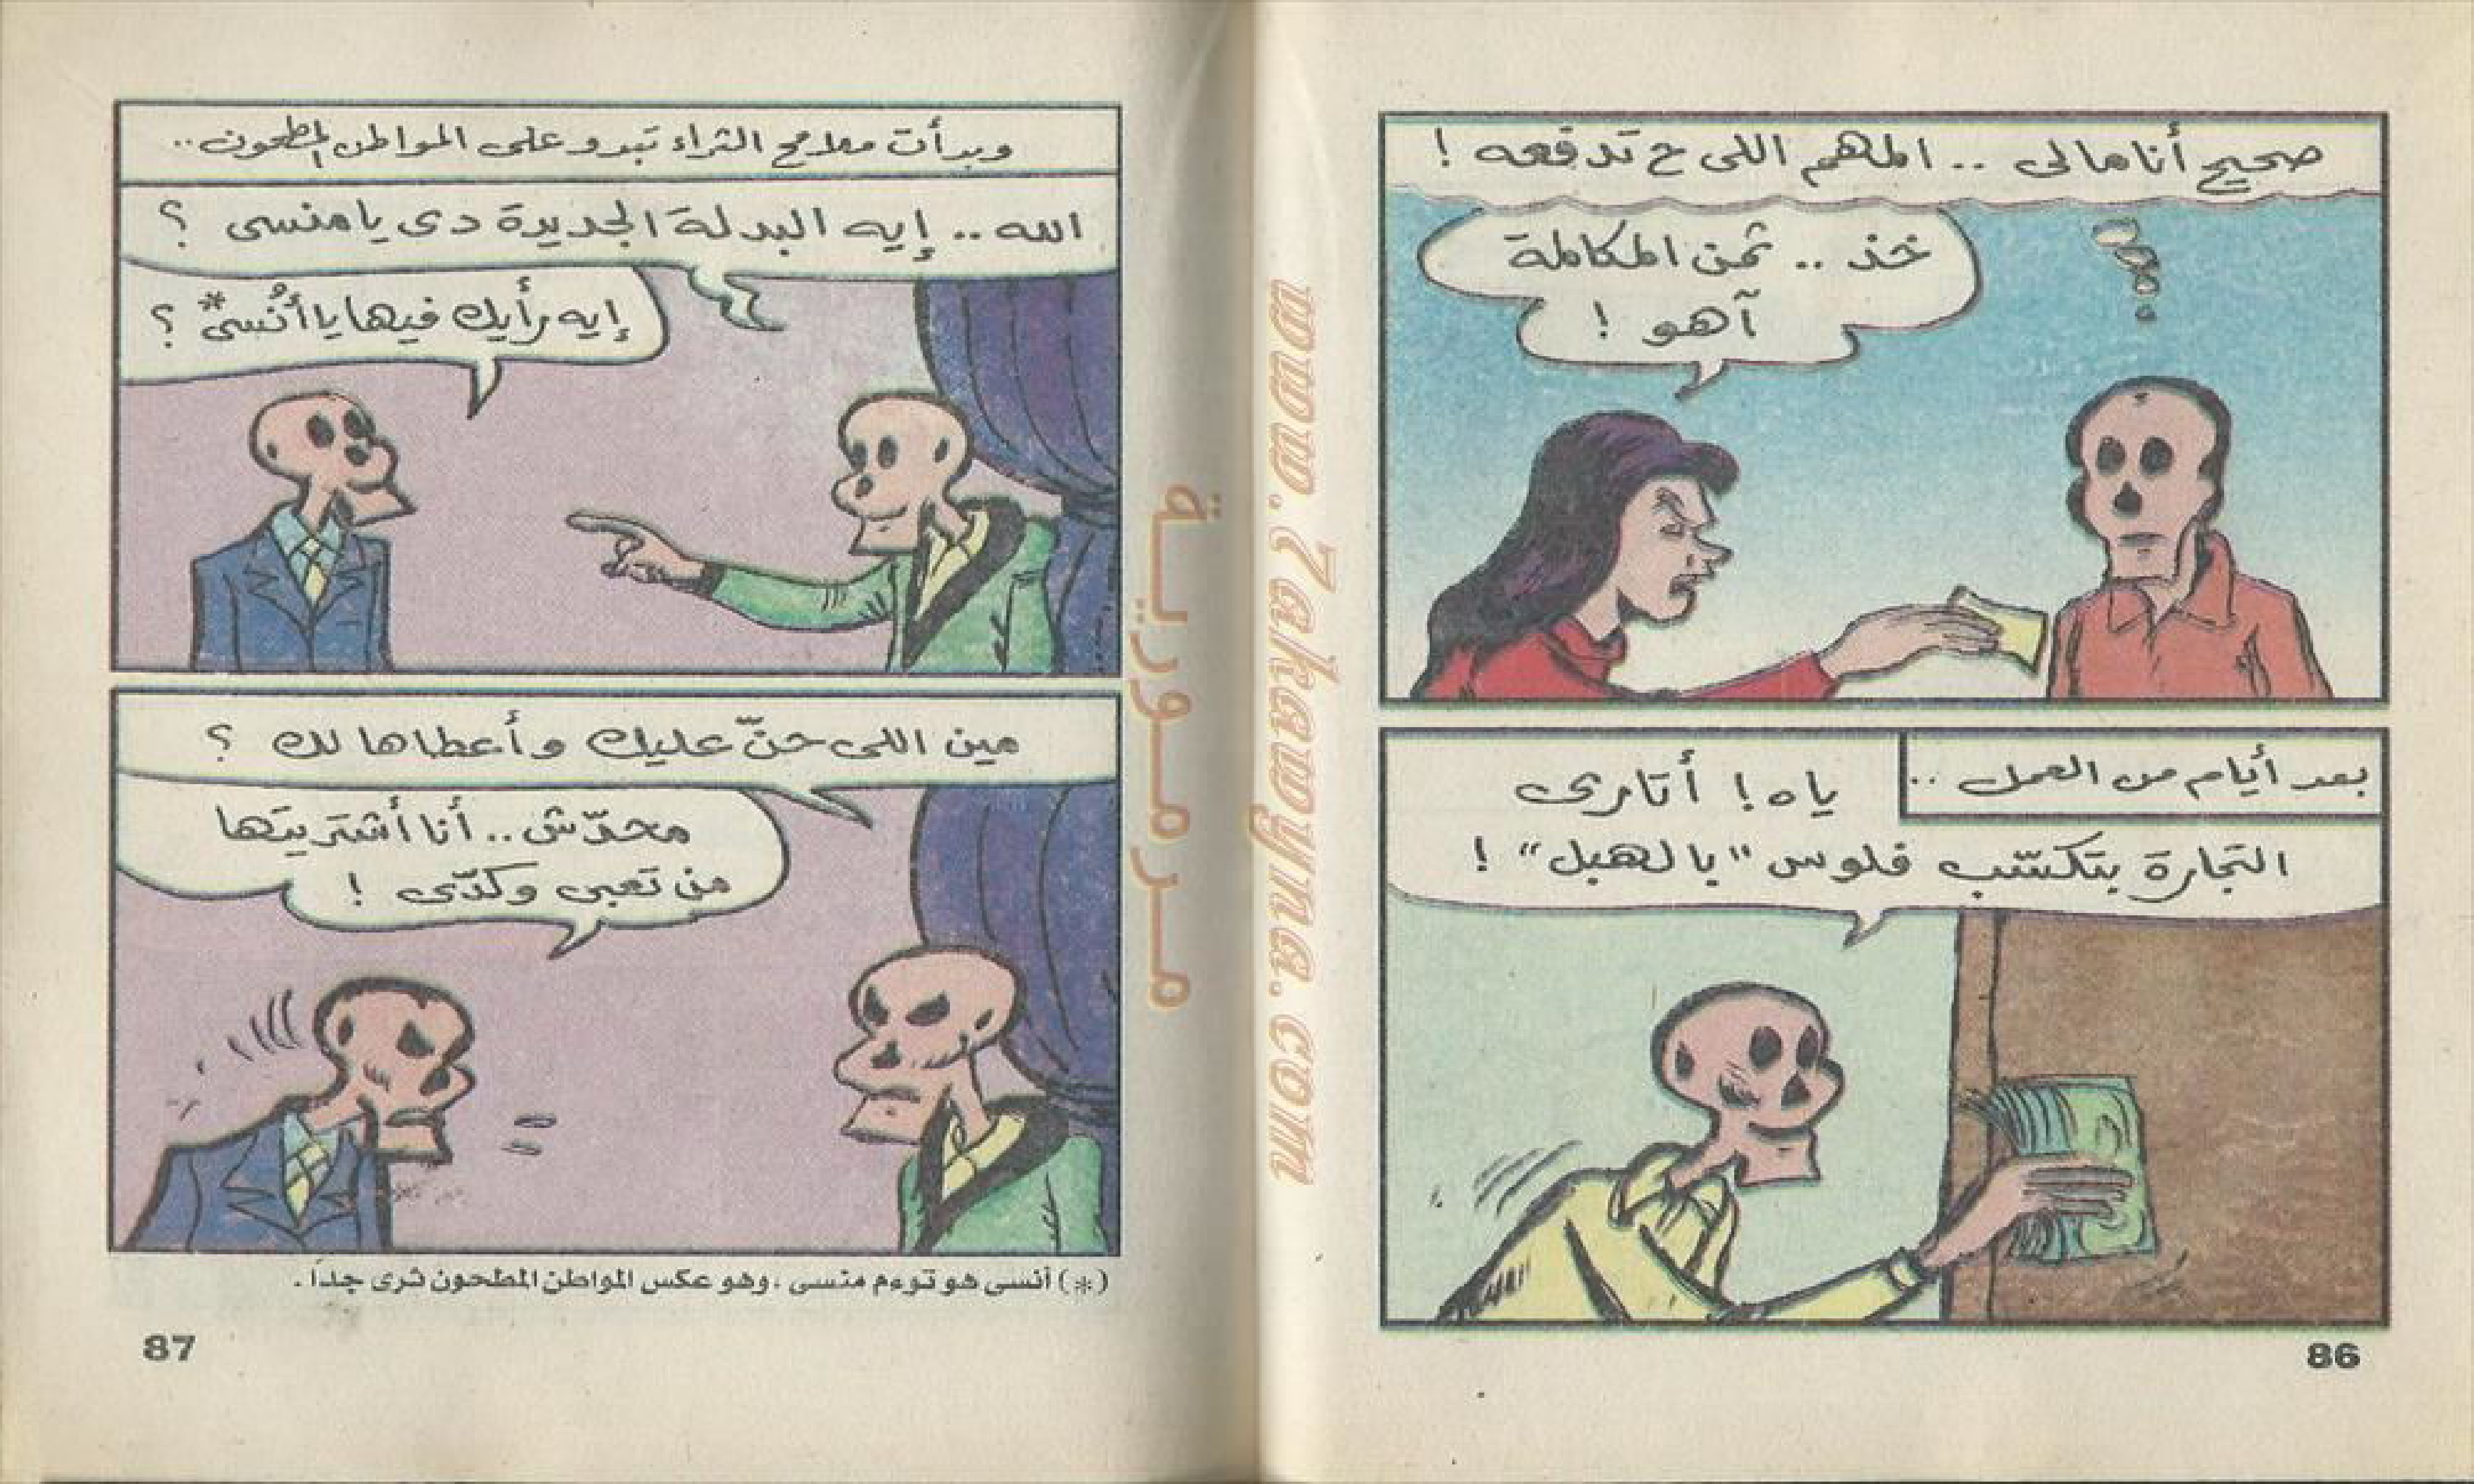 صحيح أنا مالى .. المهم اللى ح تدفعه !
خذ .. ثمن المكالمة
آهو !
بعد أيام من العمل ..
ياه ! أتارى
التجارة بتكسّب فلوس "بالهبل" !
86
وبدأت ملامح الثراء تبدو على المواطن المطحون ..
الله .. إيه البدلة الجديدة دى يا منسى ؟
إيه رأيك فيها يا أُنسى* ؟
مين اللى حنّ عليك وأعطاها لك ؟
محدّش .. أنا أشتريتها
من تعبى وكدّى !
(*) أنسى هو توءم منسى ، وهو عكس المواطن المطحون ثرى جداً .
87
مرمورية
www.7akawyna.com